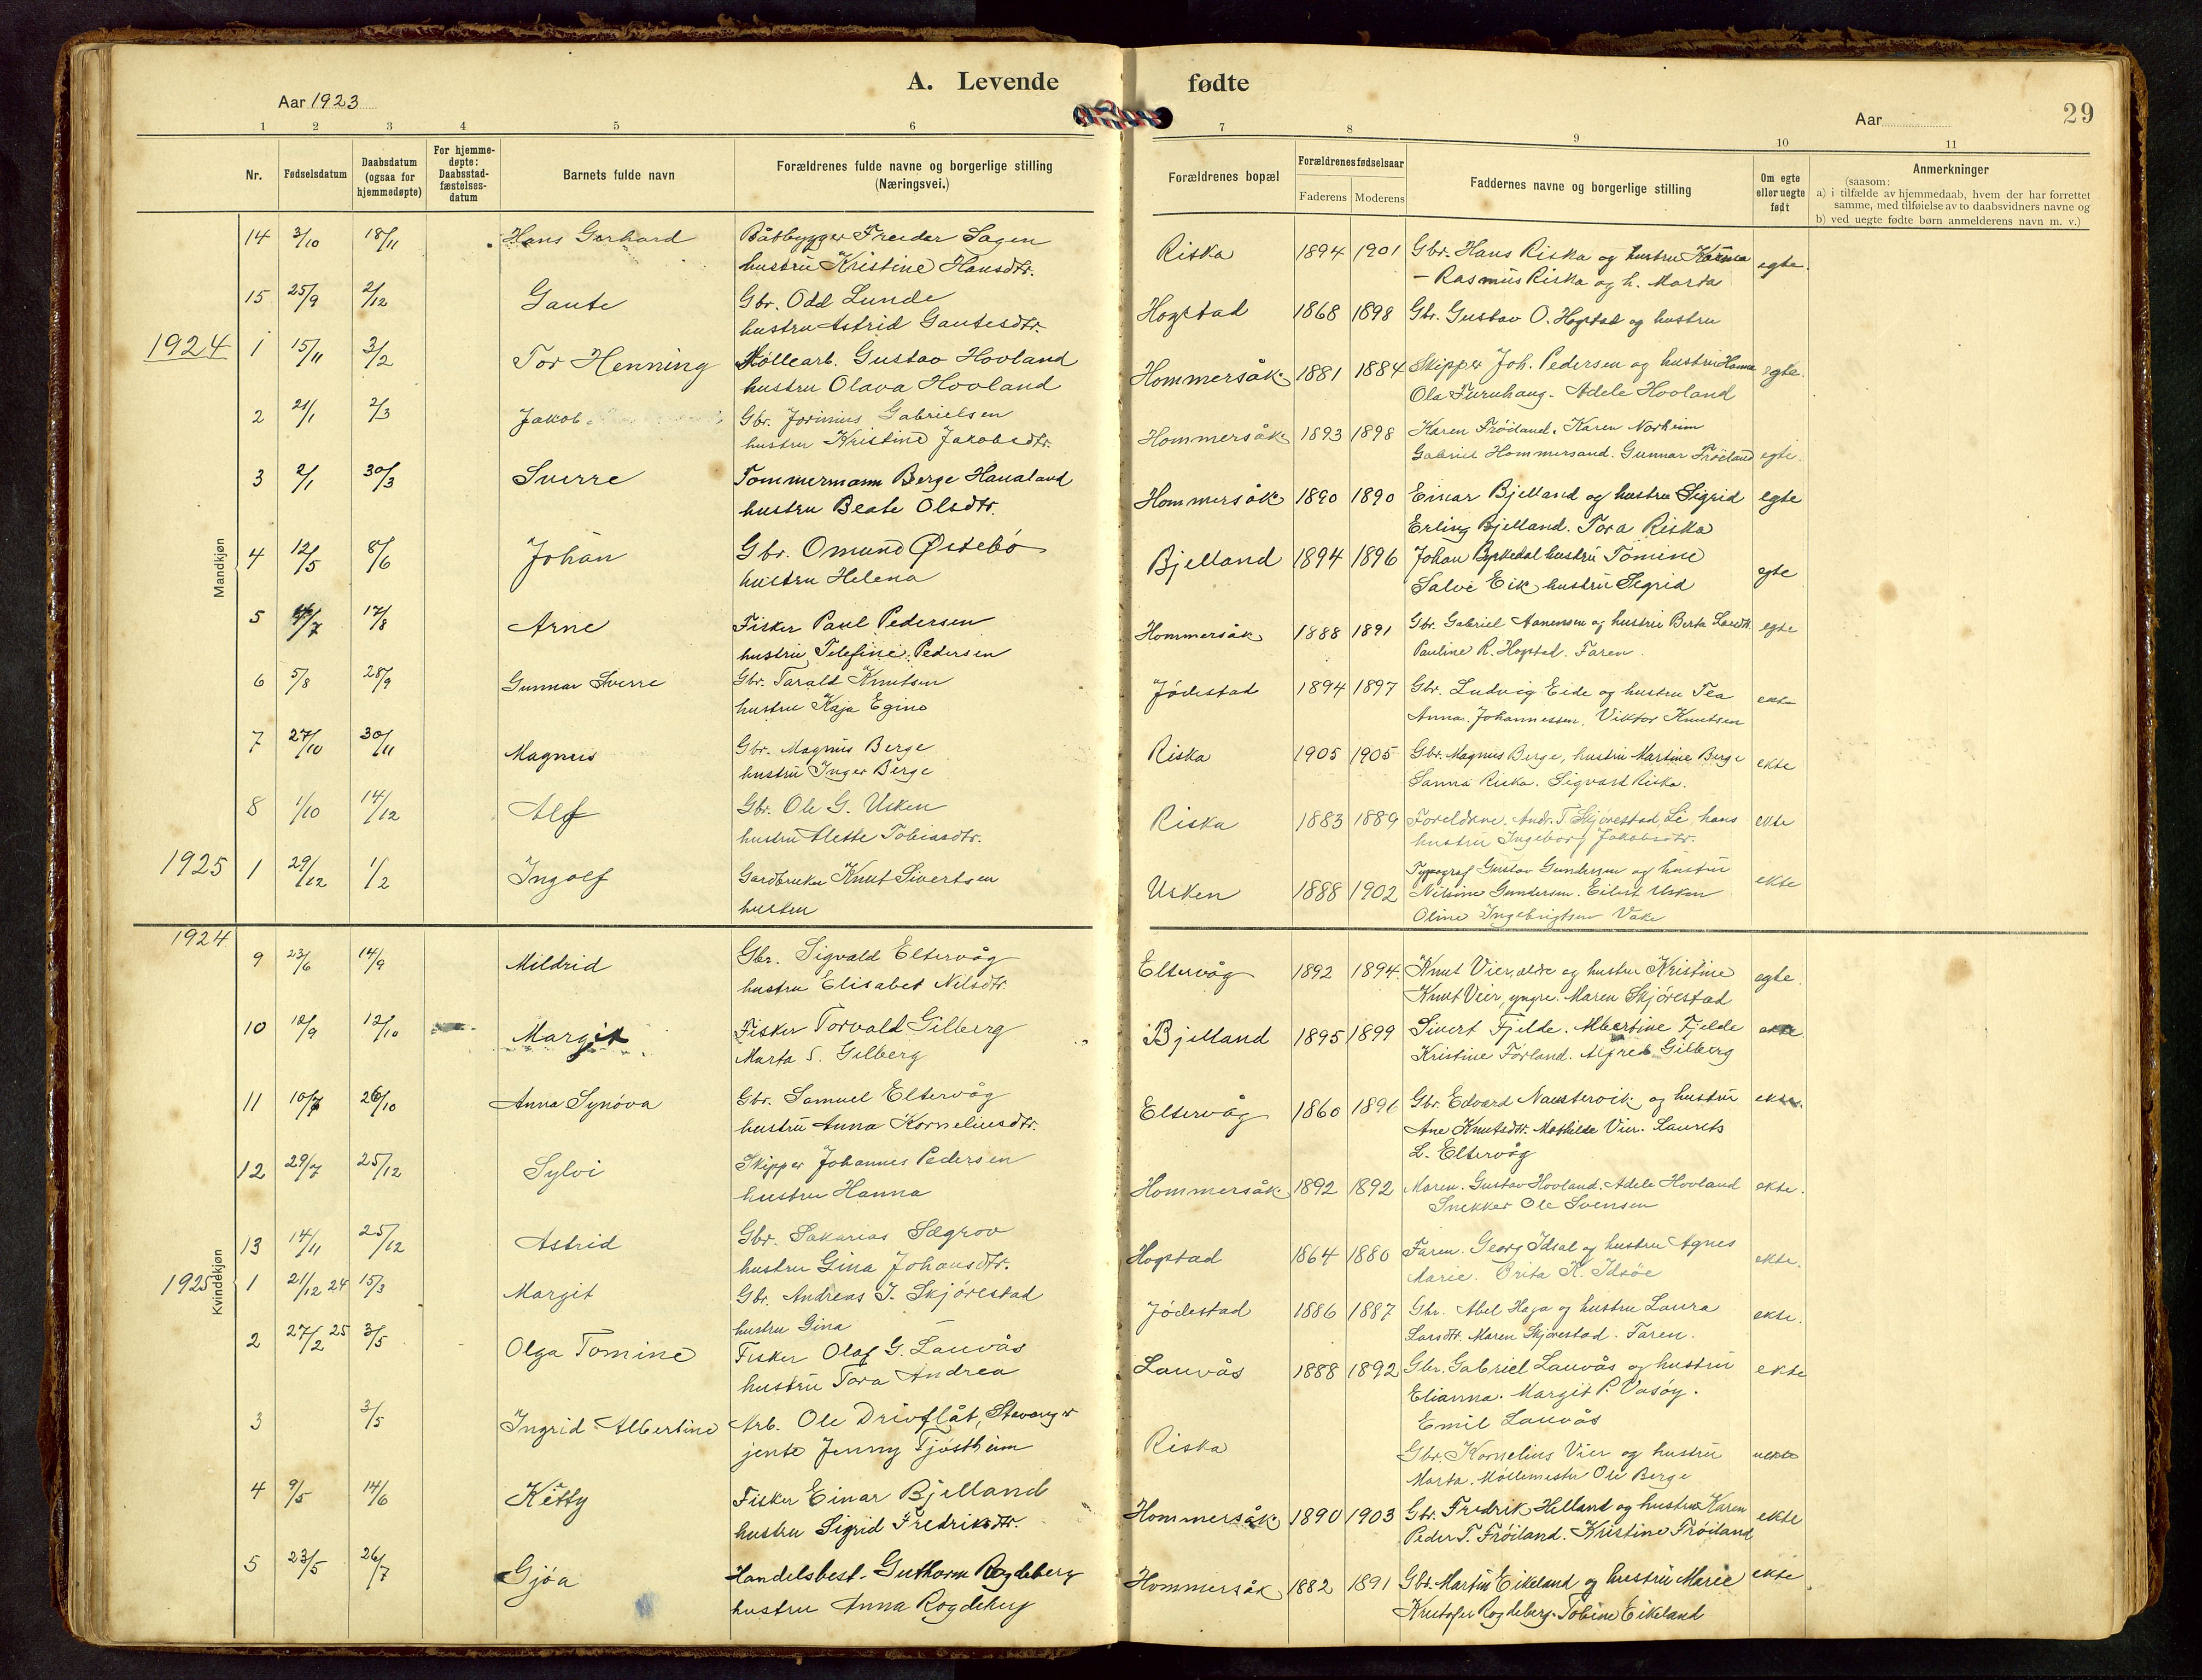 A. Levende fødte
Aar 1923
Aar
29
1 2 3 4 5 6 7 8 9 10 11
Nr.
Fødselsdatum
Daabsdatum
(ogsaa for
hjemmedøpte)
For hjemme-
døpte:
Daabsstad-
fæstelses-
datum
Barnets fulde navn
Forældrenes fulde navne og borgerlige stilling
(Næringsvei.)
Forældrenes bopæl
Forældrenes fødselsaar
Faderens Moderens
Faddernes navne og borgerlige stilling
Om egte
eller uegte
født
Anmerkninger
(saasom:
a) i tilfælde av hjemmedaab, hvem der har forrettet
samme, med tilføielse av to daabsvidners navne og
b) ved uegte fødte børn anmelderens navn m. v.)
Mandkjøn
14 3/10 18/11 Hans Gerhard Båtbygger Freidar Sagen Riska 1894 1901 Gbr. Hans Riska og hustru egte.
hustru Kristine Hansdtr. — Rasmus Riska og h. Marta
15 25/9 2/12 Gaute Gbr. Odd Lunde Hogstad 1868 1898 Gbr. Gustav O. Hogstad og hustru
hustru Astrid Gautesdtr.
1924 1 15/11 3/2 Tor Henning Møllearb. Gustav Hovland Hommersåk 1881 1884 Skipper Joh. Pedersen og hustru Hanna egte.
hustru Olava Hovland Ola Furuhaug. Adele Hovland
2 21/1 2/3 Jakob Gbr. Gabrielsen Hommersåk 1893 1898 Karen Frøiland. Karen Norheim
hustru Kristine Jakobsdtr. Gabriel Hommersand. Gunnar Frøiland egte.
3 2/1 30/3 Sverre Tommermann Berge Hanaland Hommersåk 1890 1890 Einar Bjelland og hustru Sigrid egte
hustru Beate Olsdtr. Erling Bjelland. Tora Riska
4 12/5 8/6 Johan Gbr. Omund Østebø Bjelland 1894 1896 Johan Byrkedal hustru Tomine egte
hustru Helena Salve Eik hustru Sigrid
5 /7 17/8 Arne Fisker Paul Pedersen Hommersåk 1888 1891 Gbr. Gabriel Aanensen og hustru Berta Larsdtr. egte
hustru Telefine Pedersen Pauline R. Hogstad. Faren.
6 5/8 28/9 Gunnar Sverre Gbr. Tarald Knutsen Jødestad 1894 1897 Gbr. Ludvig Eide og hustru Tea ekte
hustru Kaja Egine Anna Johannessen. Viktor Knutsen
7 27/10 30/11 Magnus Gbr. Magnus Berge Riska 1905 1905 Gbr. Magnus Berge, hustru Martine Berge ekte
hustru Inger Berge Sanna Riska. Sigvart Riska.
8 1/10 14/12 Alf Gbr. Ole G. Usken Riska 1883 1889 Foreldrene. Andr. T. Skjørestad, hans ekte
hustru Alette Tobiasdtr. hustru Ingeborg Jakobsdtr.
1925 1 29/12 1/2 Ingolf Gardbruker Knut Sivertsen Usken 1888 1902 Typograf Gustav Gundersen og hustru ekte
hustru Nilsine Gundersen. Eilert Usken
Oline Ingebrigtsen Vake
Kvindekjøn
1924
9 23/6 14/9 Mildrid Gbr. Sigvald Eltervåg Eltervåg 1892 1894 Knut Vier, eldre og hustru Kristine egte.
hustru Elisabet Nilsdtr. Knut Vier, yngre. Maren Skjørestad
10 12/9 12/10 Margit Fisker Torvald Gilberg Bjelland 1895 1899 Sivert Fjelde. Albertine Fjelde ekte.
Marta S. Gilberg Kristine Førland. Alfred Gilberg
11 10/7 26/10 Anna Synøva Gbr. Samuel Eltervåg Eltervåg 1860 1896 Gbr. Edvard Naustervik og hustru ekte.
hustru Anna Korneliusdtr. Ane Knutsdtr. Mathilde Vier. Laurits
L. Eltervåg
12 29/7 25/12 Sylvi Skipper Johannes Pedersen Hommersåk 1892 1892 Maren. Gustav Hovland. Adele Hovland ekte.
hustru Hanna Snekker Ole Svensen
13 14/11 25/12 Astrid Gbr. Sakarias Sægrov Hogstad 1864 1880 Faren. Georg Idsal og hustru Agnes ekte.
hustru Gina Johansdtr. Marie. Brita K. Idsøe
1925 1 21/12 24 15/3 Margit Gbr. Andreas J. Skjørestad Jødestad 1886 1887 Gbr. Abel Haga og hustru Laura ekte.
hustru Gina Larsdtr. Maren Skjørestad. Faren.
2 27/2 25 3/5 Olga Tomine Fisker Olaf G. Lauvås Lauvås 1888 1892 Gbr. Gabriel Lauvås og hustru ekte
hustru Tora Andrea Elianna. Margit P. Vasøy.
Emil Lauvås
3 3/5 Ingrid Albertine Arb. Ole Drivflåt, Stavanger Riska Gbr. Kornelius Vier og hustru uekte
jente Jenny Tjøstheim Marta. Møllemester Ole Berge
4 9/5 14/6 Ketty Fisker Einar Bjelland Hommersåk 1890 1903 Gbr. Fredrik Helland og hustru Karen ekte
hustru Sigrid Fredriksdtr. Peder T. Frøiland. Kristine Frøiland
5 23/5 26/7 Gjøa Handelsbest. Guthorm Rogdeberg Hommersåk 1882 1891 Gbr. Martin Eikeland og hustru Marie ekte
hustru Anna Rogdeberg Kristofer Rogdeberg. Tobine Eikeland